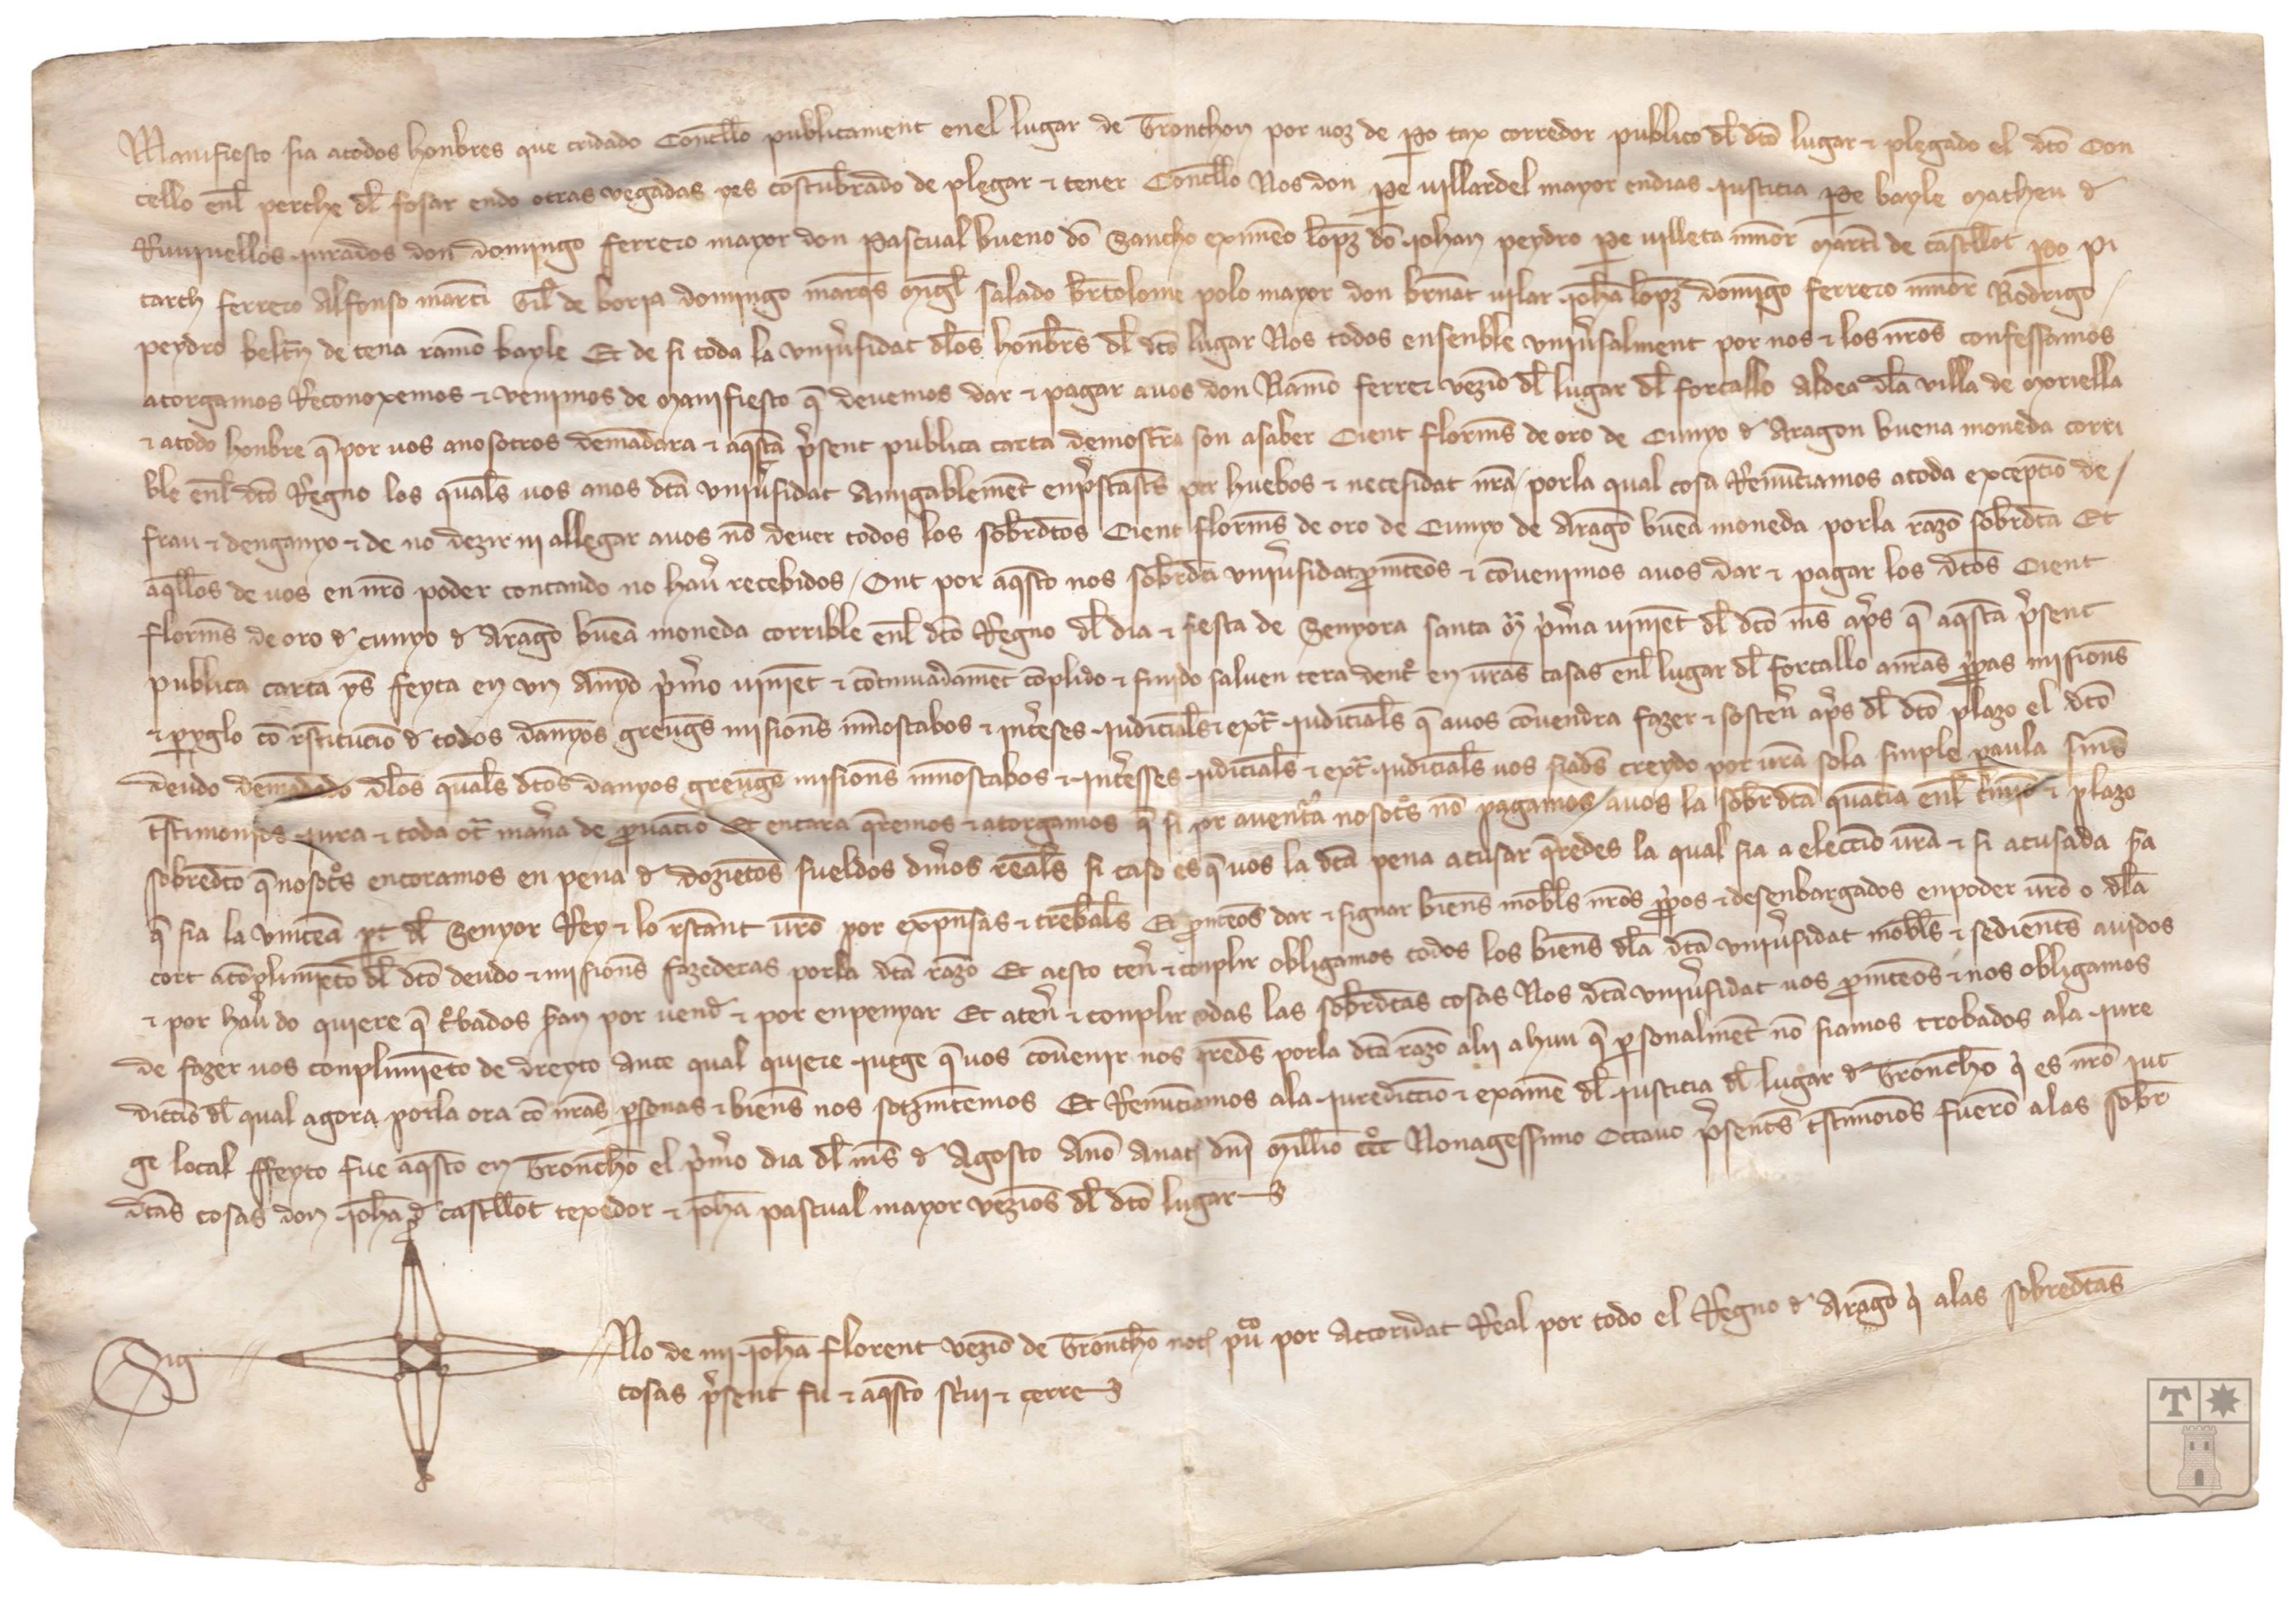 Manifiesto sia atodos honbres que cridado Concello publicament enel lugar de Tronchon por uoz de Po tax corredor publico dl dto lugar & plegado el dto Con
cello enl perche dl fosar endo otras vegadas yes costubrado de plegar & tener Concello Nos don Pe uillardel mayor endias justicia Pe bayle Matheu d
jurados don domingo ferrero mayor don Pascual bueno do Sancho eximeno lopz do johan peydro Pe uilleta menor Marti de Castellot Po pi
tarch ferrero Alfonso marti Gil de borja domingo marqs Migl salado Bertolome polo mayor don bernat uilar joha lopz domigo ferrero menor Rodrigo
peydro beltn de tena ramo bayle Et de si toda la vniusidat dlos honbrs dl dto lugar Nos todos ensenble vniusalment por nos & los nros confessamos
atorgamos Reconoxemos & venimos de manifiesto q deuemos dar & pagar auos don Ramo ferrer vezio dl lugar dl forcallo aldea dla villa de Moriella
& atodo honbre q por uos anosotros demadara & aqsta psent publica carta demostra son asaber Cient florins de oro de Cunyo d Aragon buena moneda corri
ble enl dto Regno los quals uos anos dta vniusidat Amigablemet enpstasts per huebos & necesidat nra / porla qual cosa Renuciamos atoda exceptio de /
frau & denganyo & de no dezir ni allegar auos no deuer todos los sobrdtos Cient florins de oro de Cunyo de Arago buea moneda porla razo sobrdta Et
aqllos de uos en nro poder contando no hau recebidos / Ont por aqsto nos sobrdta vniusidat pmteos & couenimos auos dar & pagar los dtos Cient
florins de oro d cunyo d Arago buea moneda corrible enl dto Regno dl dia & fiesta de Senyora santa M pma uiniet dl dto ms aps q aqsta psent
publica carta ys feyta en vn Anyo pmo uiniet & cotinuadamet coplido & finido saluen tera dent en uras casas enl lugar dl forcallo anras ppas misions
& piglo co rstitucio d todos danyos greuges misions & interses judicials & extr judicials q auos couendra fazer & sosten aps dl dto plazo el dto
deudo demadado dlos quals dtos danyos greuges misions & intersses judicials & extr judicials uos siads creydo por ura sola sinple paula sins
tstimonios jura & toda otr mana de puacio Et encara qremos & atorgamos q si por auentra nosots no pagamos auos la sobrdta quatia enl & plazo
sobredto q nosots encoramos en pena d dozietos sueldos dinos reals si caso es q uos la dta pena acusar qredes la qual sia a electio ura & si acusada sa
q sia la vintea pt dl Senyor Rey & lo rstant uro por expnsas & trebals Et pmteos dar & signar biens mobls nros ppos & desenbargados enpoder uro o dla
cort acoplimieto dl dto deudo & misions fazederas porla dta razo Et aesto ten & conplir obligamos todos los biens dla dta vniusidat mobls & sedients auidos
& por hau do quiere q trbados san por uend & por enpenyar Et aten & conplir todas las sobrdtas cosas Nos dta vniusidat uos pmteos & nos obligamos
de fazer uos conplimieto de dreyto ante qual quiere jutge q uos couenir nos qreds porla dta razo alli ahun q psonalment no siamos trobados ala jure
dictio dl qual agora porla ora co nras psonas & biens nos sotzmtemos Et Renuciamos ala juredictio & exame dl justicia dl lugar d Troncho q es nro jut
ge local ffeyto fue aqsto en Troncho el pmo dia dl ms d Agosto Ano Anat dni Millio ccc Nonagessimo Octauo psents tstimoios fuero alas sobr
dtas cosas don joha d castellot texedor & joha pascual mayor vezios dl dto lugar
Sig No de mi joha florent vezio de Troncho not puco por Actoridat Real por todo el Regno d Arago q alas sobredtas
cosas psent fu & aqsto scriui & cerre
T